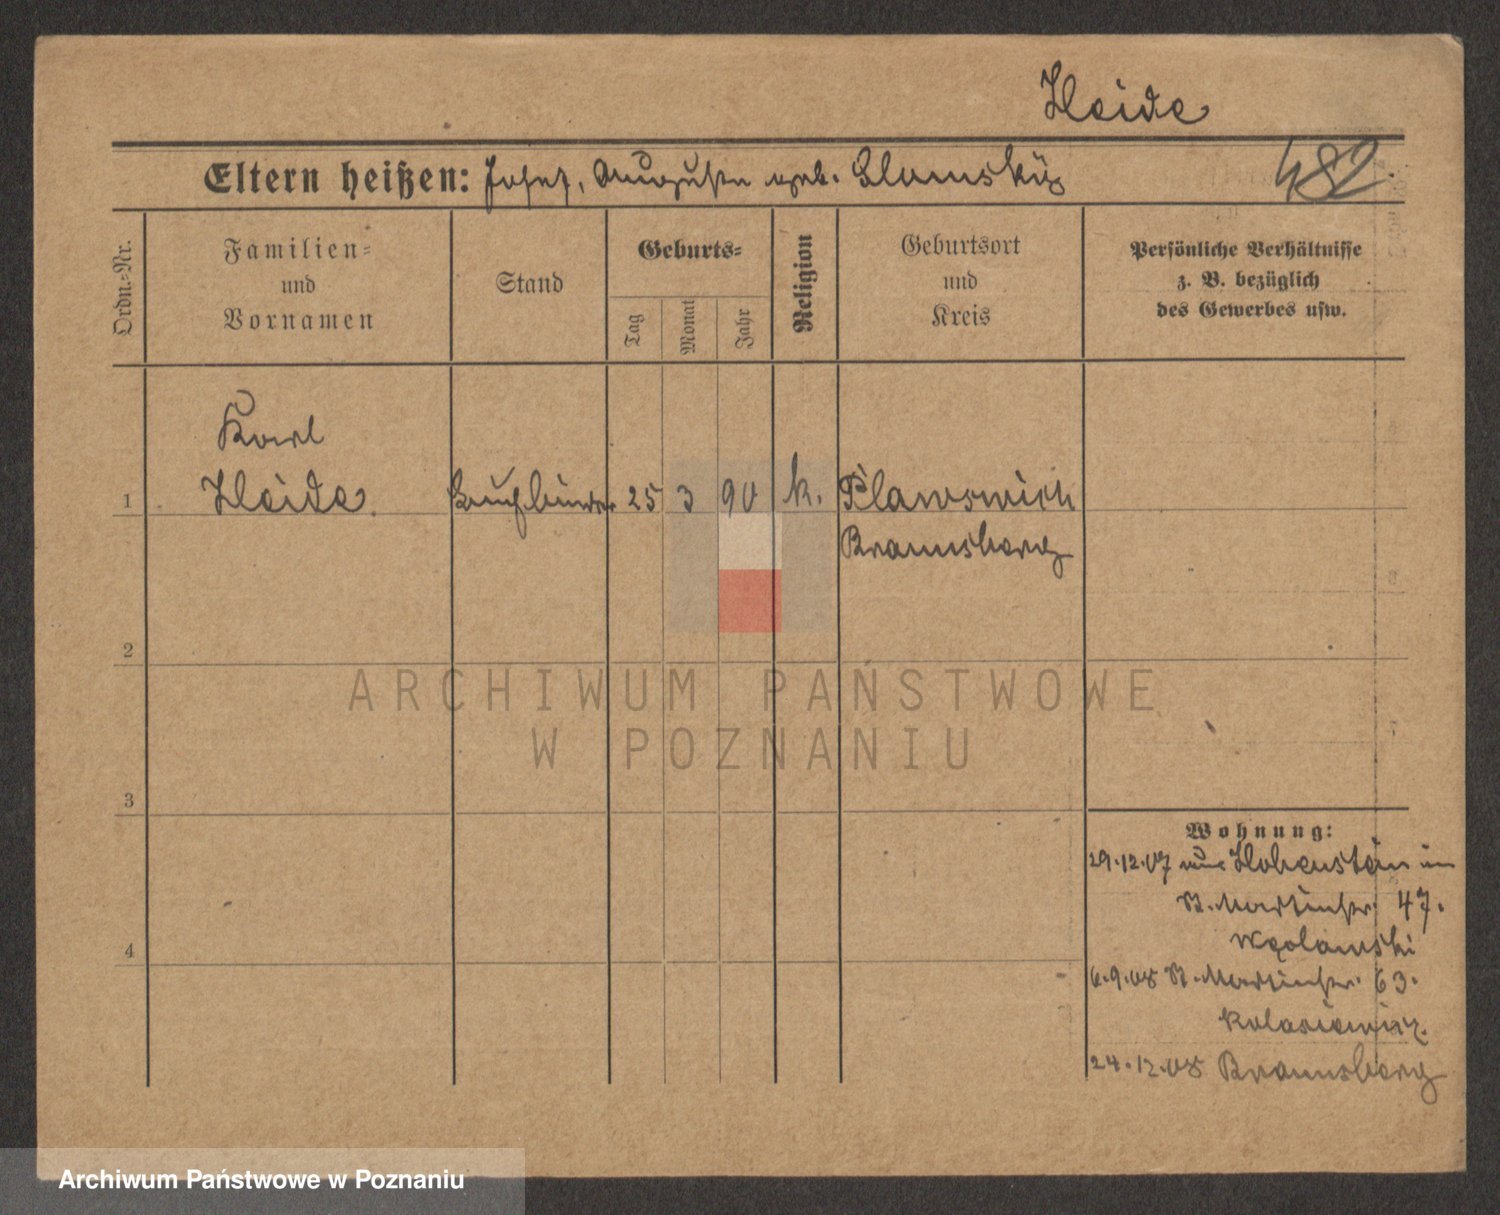 Heide
Eltern heißen: Josef, Auguste geb. Slomsky
482.
Ordn.-Nr.
Familien-
und
Vornamen
Stand
Geburts-
Tag
Monat
Jahr
Religion
Geburtsort
und
Kreis
Persönliche Verhältnisse
z. B. bezüglich
des Gewerbes usw.
Karl
1 Heide 25 3 90 k.
Braunsberg
2
ARCHIWUM PAŃSTWOWE
W POZNANIU
3
Wohnung:
29.12.07 aus Hohenstein in
St. Martinstr. 47.
4
6.9.08 St. Martinstr. 63.
24.12.08 Braunsberg
Archiwum Państwowe w Poznaniu